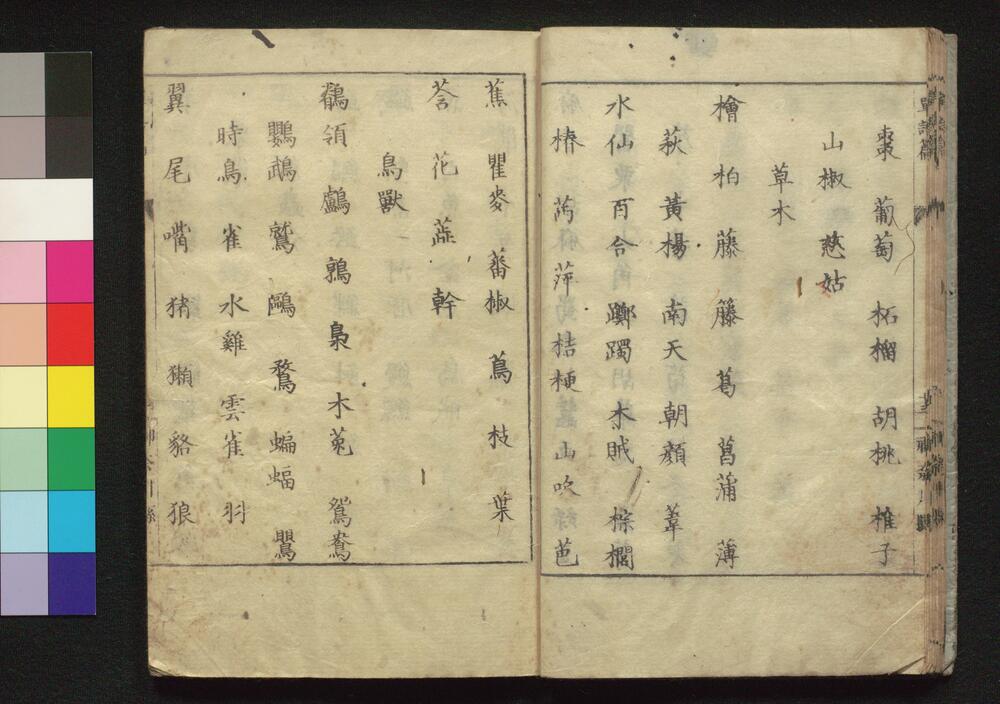 棗 葡萄 柘榴 胡桃 椎子
山椒 慈姑
草木
檜 柏 藤 籐 葛 菖蒲 薄
萩 黄楊 南天 朝顔 葦
水仙 百合 躑躅 木賊 棕櫚
椿 萍 桔梗 山吹 芭
蕉 瞿麥 蕃椒 蔦 枝 葉
莟 花 蕋 幹
鳥獸
鶺領 鸕 鶉 梟 木菟 鴛鴦
鸚鵡 鷲 鷗 鶩 蝙蝠
時鳥 雀 水雞 雲雀 羽
翼 尾 嘴 猪 獺 貉 狼